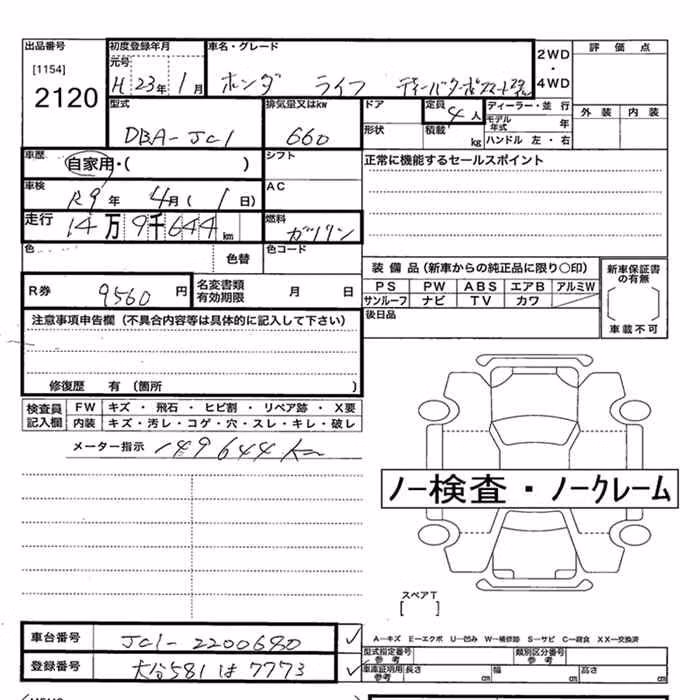 出品番号 初度登録年月 車名・グレード 2WD・4WD 評価点
[1154] 元号
2120 H 23年 1月 ホンダ ライフ
型式 排気量又はkw ドア 定員 4人 ディーラー・並行 外装 内装
DBA-JC1 660 形状 積載 kg モデル年式 年
ハンドル 左・右
車歴 自家用・( ) シフト 正常に機能するセールスポイント
車検 R9年 4月( 1日) AC
走行 14万9千644km 燃料 ガソリン
色 色替 色コード
装備品(新車からの純正品に限り○印) 新車保証書の有無
R券 9560円 名変書類有効期限 月 日 PS PW ABS エアB アルミW
サンルーフ ナビ TV カワ
注意事項申告欄(不具合内容等は具体的に記入して下さい) 後日品 車載不可
修復歴 有(箇所 )
検査員記入欄 FW キズ・飛石・ヒビ割・リペア跡・X要
内装 キズ・汚レ・コゲ・穴・スレ・キレ・破レ
メーター指示 149644km
ノー検査・ノークレーム
スペアT
[ ]
車台番号 JC1-2200680 A-キズ E-エクボ U-凹み W-補修跡 S-サビ C-腐食 XX-交換済
型式指定番号 参考 類別区分番号 参考
登録番号 大分581は7773 車庫証明用参考 長さ cm 幅 cm 高さ cm